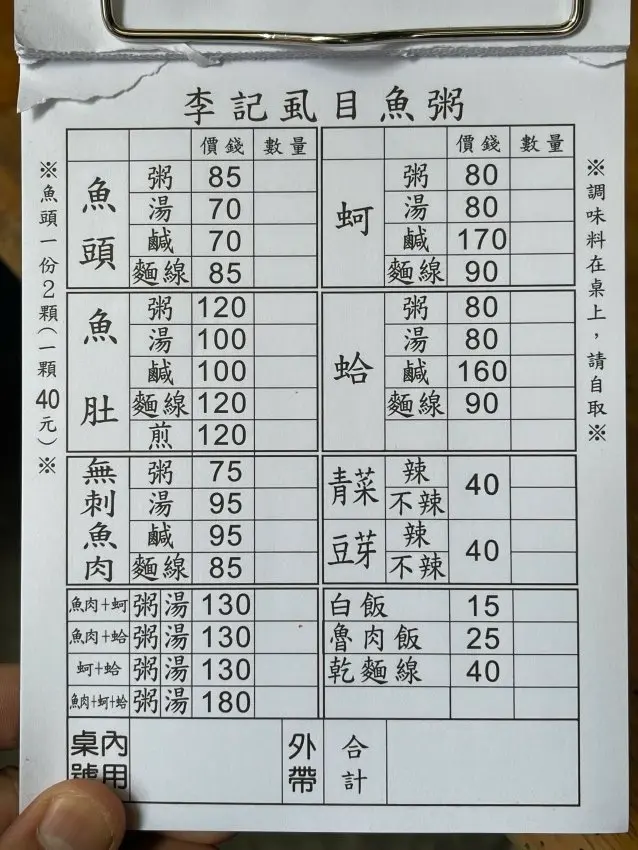 李記虱目魚粥
價錢 數量
魚頭
粥 85
湯 70
鹹 70
麵線 85
魚肚
粥 120
湯 100
鹹 100
麵線 120
煎 120
無刺魚肉
粥 75
湯 95
鹹 95
麵線 85
魚肉+蚵 粥 湯 130
魚肉+蛤 粥 湯 130
蚵+蛤 粥 湯 130
魚肉+蚵+蛤 粥 湯 180
價錢 數量
蚵
粥 80
湯 80
鹹 170
麵線 90
蛤
粥 80
湯 80
鹹 160
麵線 90
青菜 辣 不辣 40
豆芽 辣 不辣 40
白飯 15
魯肉飯 25
乾麵線 40
內用桌號
外帶
合計
※魚頭一份2顆(一顆40元)※
※調味料在桌上,請自取※